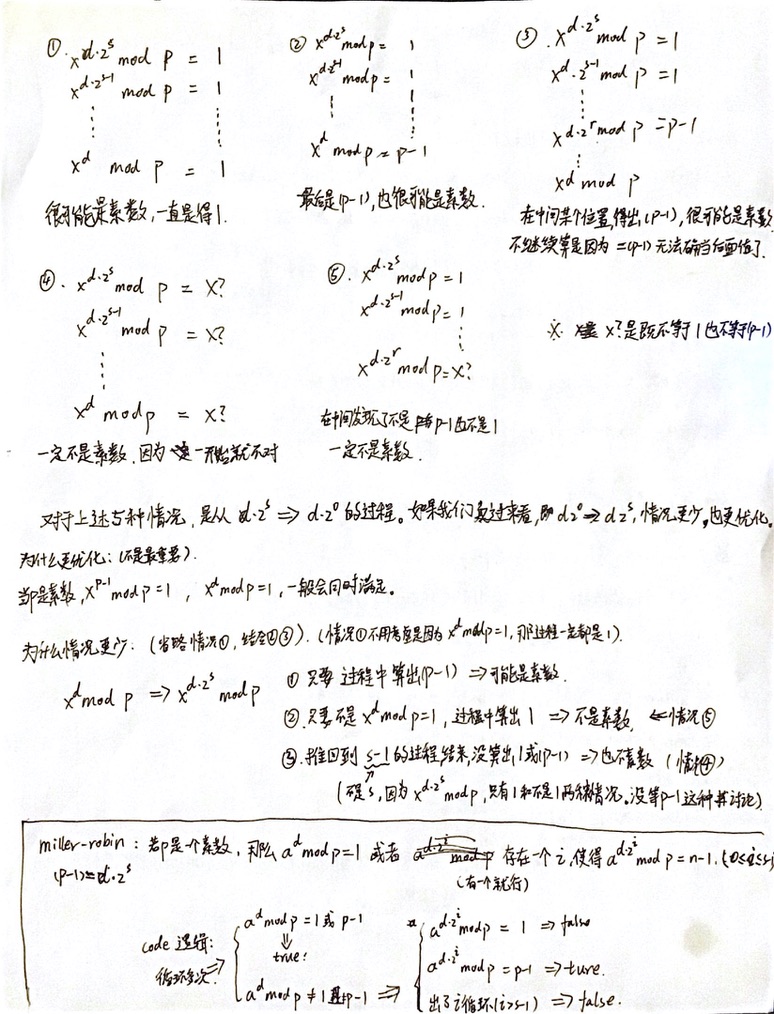 ① x^{d·2^s} mod p = 1
x^{d·2^{s-1}} mod p = 1
x^d mod p = 1
很可能是素数,一直是得1.
② x^{d·2^s} mod p = 1
x^{d·2^{s-1}} mod p = 1
x^d mod p = p-1
最后是(p-1),也很可能是素数.
③. x^{d·2^s} mod p = 1
x^{d·2^{s-1}} mod p = 1
x^{d·2^r} mod p = p-1
x^d mod p
在中间某个位置,得出(p-1),很可能是素数
不继续算是因为 =(p-1) 无法确当后面值了.
④. x^{d·2^s} mod p = X?
x^{d·2^{s-1}} mod p = X?
x^d mod p = X?
一定不是素数.因为一开始就不对
⑤. x^{d·2^s} mod p = 1
x^{d·2^{s-1}} mod p = 1
x^{d·2^r} mod p = X?
在中间发现了不是p-1也不是1
一定不是素数.
※ X?是既不等于1也不等于(p-1)
对于上述5种情况,是从 d·2^s ⇒ d·2^0 的过程。如果我们反过来看,即 d·2^0 ⇒ d·2^s,情况更少,也更优化。
为什么更优化:(不是最重要).
当p是素数,x^{p-1} mod p = 1 , x^d mod p = 1,一般会同时满足。
为什么情况更少:(省略情况①,结合②③).(情况①不用考虑是因为 x^d mod p = 1,那过程一定都是1).
x^d mod p ⇒ x^{d·2^s} mod p
① 只要 过程中算出(p-1) ⇒可能是素数.
②.只要不是 x^d mod p = 1, 过程中算出 1 ⇒ 不是素数. ⇐情况⑤
③.推回到 s-1 的过程结束,没算出1或(p-1) ⇒ 也不素数 (情况④)
(不是s,因为 x^{d·2^s} mod p,只有1和不是1两种情况。没等p-1这种再讨论)
miller-robin : 若p是一个素数,那么 a^d mod p = 1 或者 存在一个 i,使得 a^{d·2^i} mod p = n-1. (0≤i≤s-1)
(p-1)=d·2^s
(有一个就行)
code 逻辑:
循环多次 ⇒
a^d mod p = 1 或 p-1
⇓
true:
a^d mod p ≠ 1 且≠ p-1 ⇒
a^{d·2^i} mod p = 1 ⇒ false
a^{d·2^i} mod p = p-1 ⇒ ture.
出了i循环(i>s-1) ⇒ false.